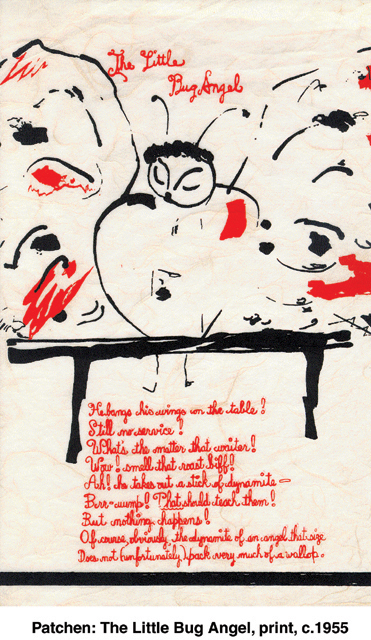 The Little
Bug Angel
He bangs his wings on the table!
Still no service!
What's the matter that waiter!
Wow! smell that roast biff!
Ah! he takes out a stick of dynamite—
Brr-wump! That should teach them!
But nothing happens!
Of course, obviously, the dynamite of an angel that size
Does not (unfortunately) pack very much of a wallop.
Patchen: The Little Bug Angel, print, c.1955